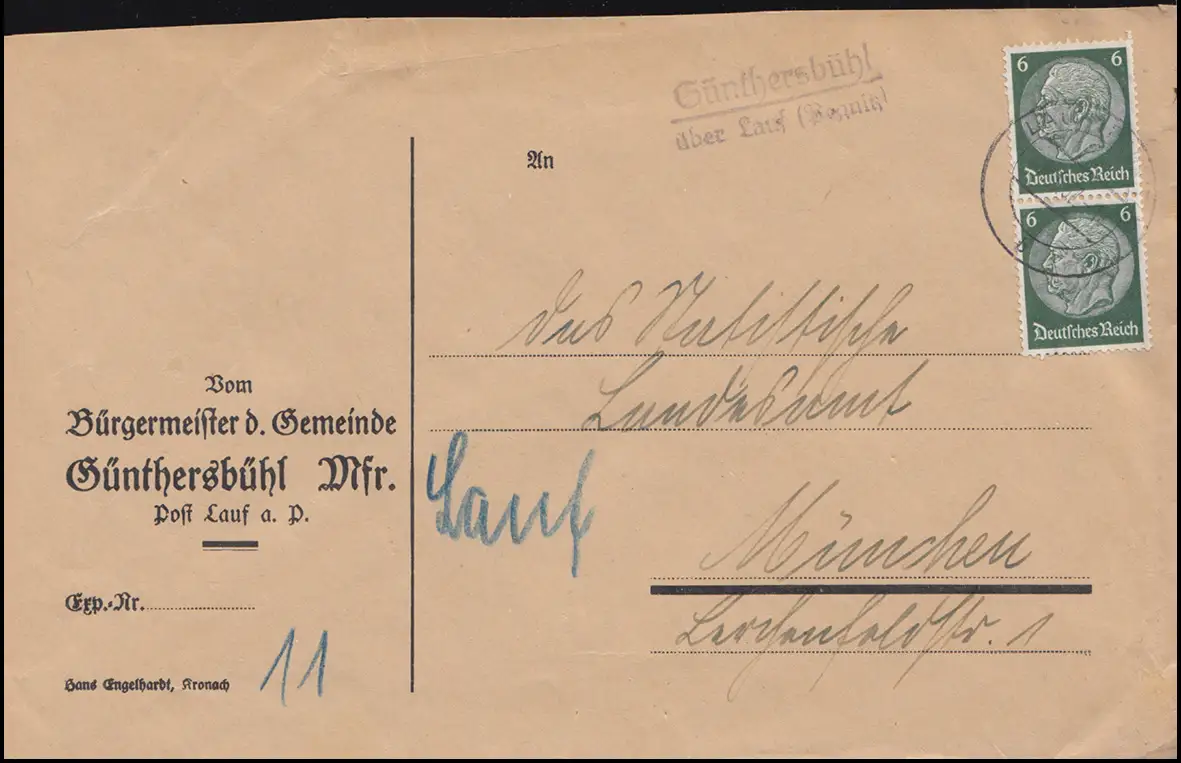 Günthersbühl
über Lauf (Pegnitz)
6
6
Deutsches Reich
6
6
Deutsches Reich
An
das Statistische
Landesamt
München
Lerchenfeldstr. 1
Vom
Bürgermeister d. Gemeinde
Günthersbühl Mfr.
Post Lauf a. P.
Exp.-Nr.
Hans Engelhardt, Kronach
Lauf
11